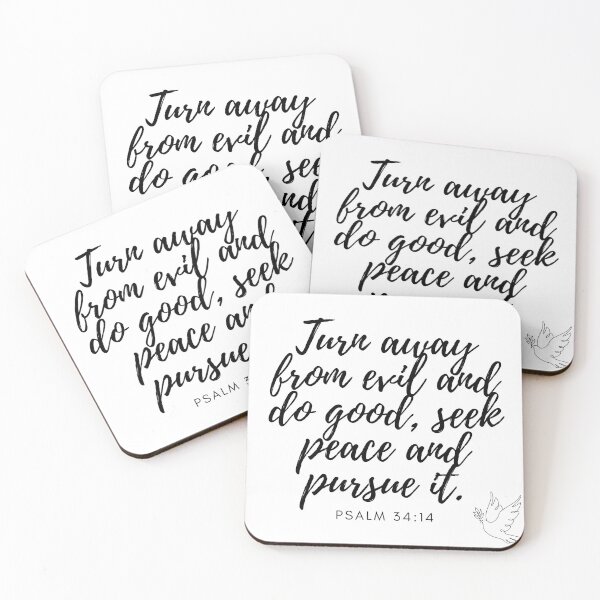 Turn away
from evil and
do good,
Turn away
from evil and
do good, seek
peace and
Turn away
from evil and
do good, seek
peace and
pursue
PSALM
Turn away
from evil and
do good, seek
peace and
pursue it.
PSALM 34:14